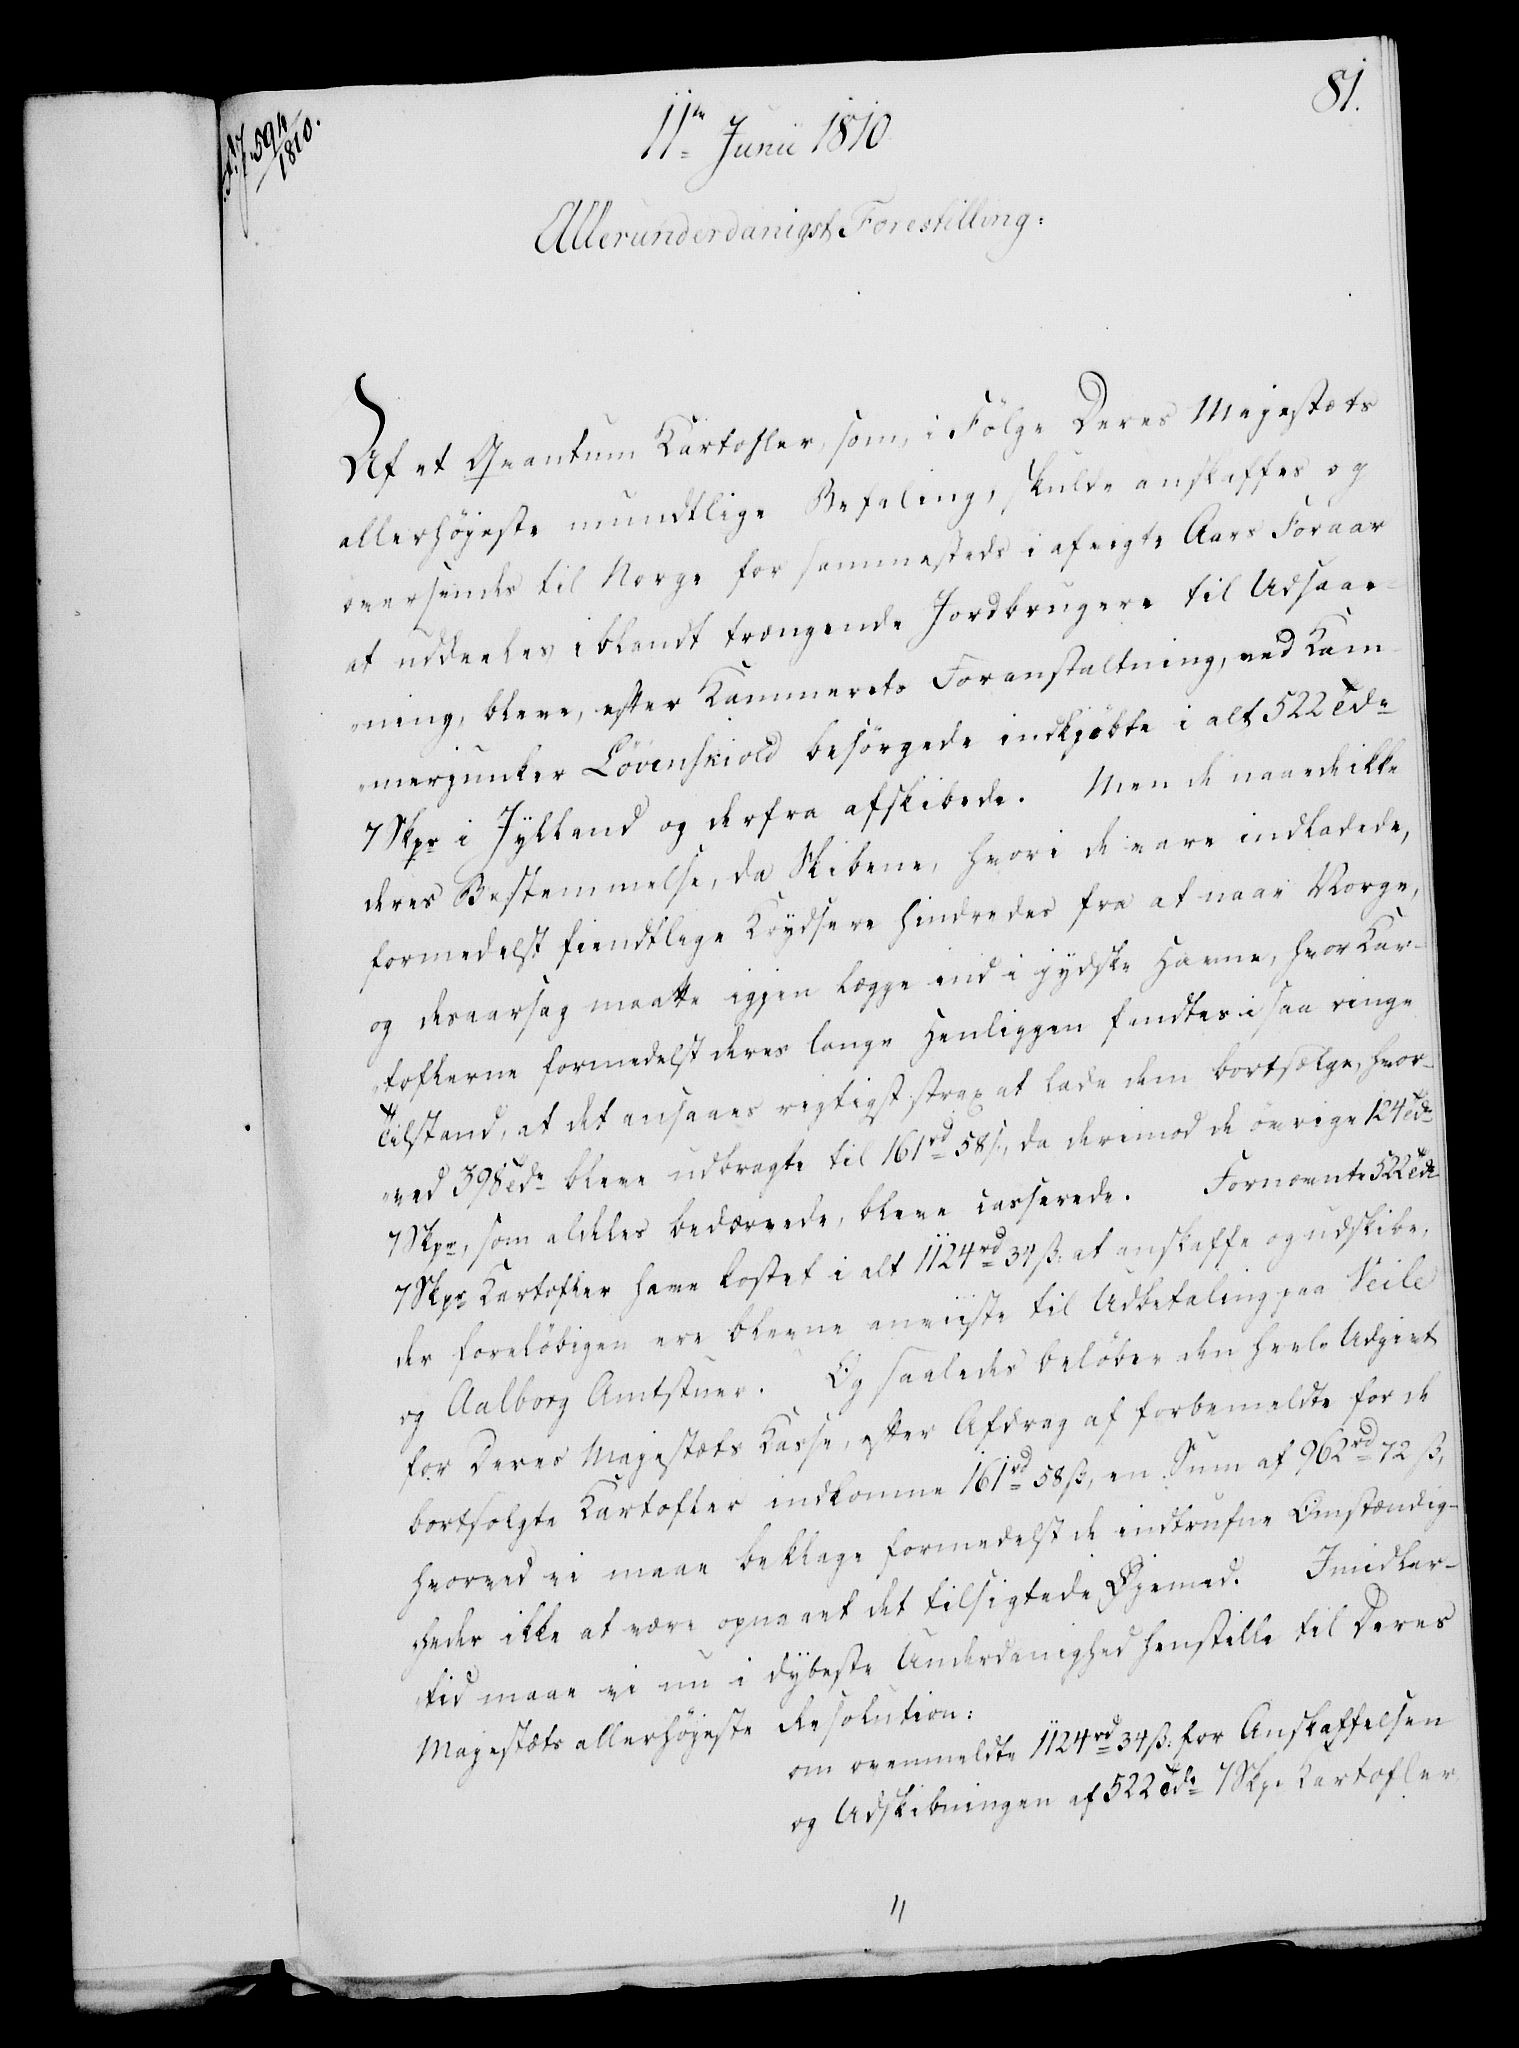 81.
594
1810.
11te Junii 1810
Allerunderdanigst Forestilling:
Af et Qvantum Kartofler, som, i Følge Deres Majestæts
allerhøjeste mundtlige Befaling, skulde anskaffes og
oversendes til Norge for sammesteds i afvigte Aars Foraar
at uddeeles iblandt trængende Jordbrugere til Udsaae-
ning, bleve, efter Kammerets Foranstaltning, ved Kam-
merjunker Løvenskiold besørgede indkjøbte i alt 522 Tdr
7 Skpr i Jylland og derfra afskibede. Men de naaede ikke
deres Bestemmelse, da Skibene, hvori de vare indladede,
formedelst fiendtlige Krydsere hindredes fra at naae Norge,
og desaarsag maatte igjen lægge ind i jydske Havne, hvor Kar-
toflerne formedelst deres lange Henliggen fandtes i saa ringe
Tilstand, at det ansaaes rigtigst strax at lade dem bortsælge, hvor-
ved 398 Tdr bleve udbragte til 161rd 58 s, da derimod de øvrige 124 Tdr
7 Skpr, som aldeles bedærvede, bleve casserede. Fornævnte 522 Tdr
7 Skpr Kartofler have kostet i alt 1124rd 34 ß. at anskaffe og udskibe,
der foreløbigen ere blevne anviiste til Udbetaling paa Veile
og Aalborg Amtstuer. Og saaledes beløber den heele Udgivt
for Deres Majestæts Kasse, efter Afdrag af forbemeldte for de
bortsolgte Kartofler indkomne 161rd 58 ß, en Sum af 962rd 72 ß,
hvorved vi maae beklage formedelst de indtrufne Omstændig-
heder ikke at være opnaaet det tilsigtede Øjemed. Imidler-
tid maae vi nu i dybeste Underdanighed henstille til Deres
Majestæts allerhøjeste Resolution:
om ovenmeldte 1124rd 34 ß. for Anskaffelsen
og Udskibningen af 522 Tdr 7 Skpr Kartofler